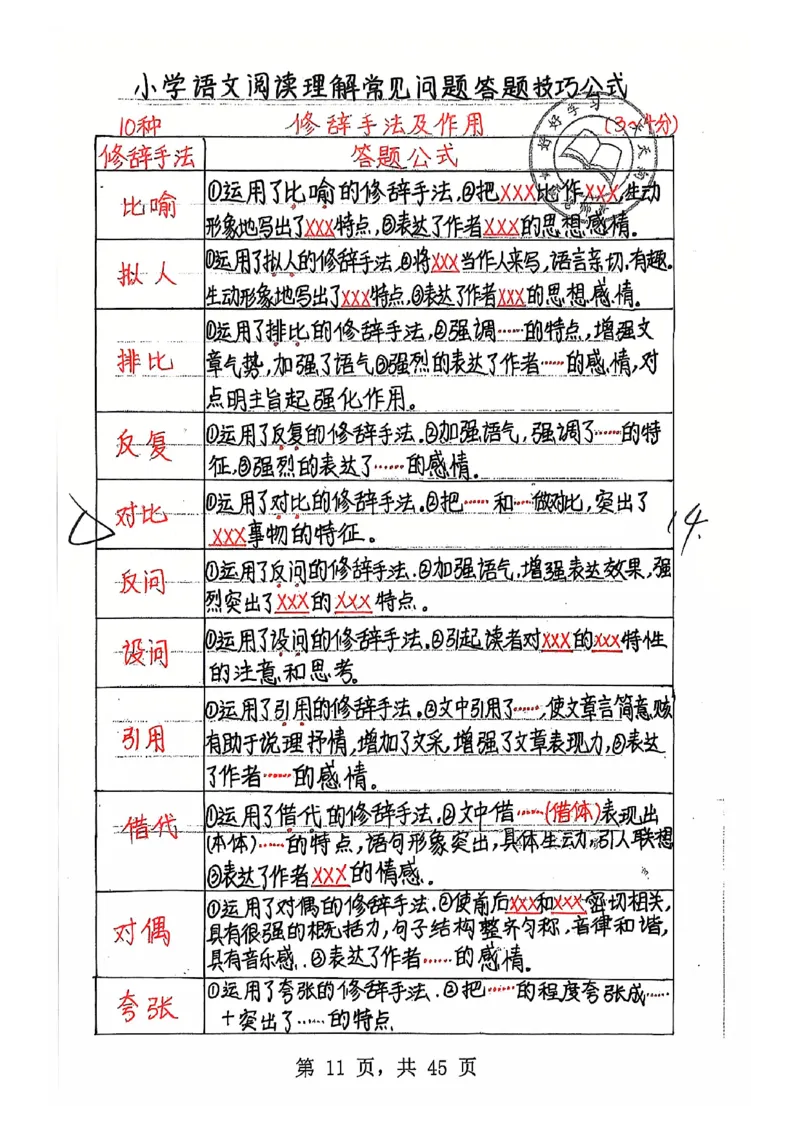 小学语文阅读理解常见问题答题技巧公式
10种 修辞手法及作用 (3~4分)
修辞手法 答题公式
比喻
①运用了比喻的修辞手法,②把XXX比作XXX,生动
形象地写出了XXX特点,③表达了作者XXX的思想感情。
拟人
①运用了拟人的修辞手法,②将XXX当作人来写,语言亲切.有趣。
生动形象地写出了XXX特点,③表达了作者XXX的思想感情。
排比
①运用了排比的修辞手法,②强调……的特点,增强文
章气势,加强了语气③强烈的表达了作者……的感情,对
点明主旨起强化作用。
反复
①运用了反复的修辞手法.②加强语气,强调了……的特
征,③强烈的表达了……的感情。
对比
①运用了对比的修辞手法.②把……和……做对比,突出了
XXX事物的特征。
14.
反问
①运用了反问的修辞手法.②加强语气,增强表达效果,强
烈突出了XXX的XXX特点。
设问
①运用了设问的修辞手法.②引起读者对XXX的XXX特性
的注意和思考。
引用
①运用了引用的修辞手法.②文中引用了……,使文章言简意赅
有助于说理抒情,增加了文采,增强了文章表现力,③表达
了作者……的感情。
借代
①运用了借代的修辞手法,②文中借……(借体)表现出
(本体)……的特点,语句形象突出,具体生动,引人联想
③表达了作者XXX的情感。
对偶
①运用了对偶的修辞手法.②使前后XXX和XXX密切相关,
具有很强的概括力,句子结构整齐匀称,音律和谐,
具有音乐感.③表达了作者……的感情。
夸张
①运用了夸张的修辞手法.②把……的程度夸张成……
+突出了……的特点
第 11 页，共 45 页